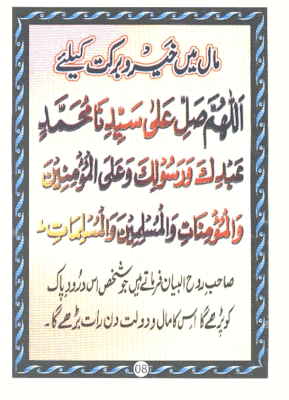 مال میں خیر و برکت کیلئے
اَللّٰهُمَّ صَلِّ عَلٰی سَيِّدِنَا مُحَمَّدٍ
عَبْدِكَ وَرَسُوْلِكَ وَعَلَی الْمُؤْمِنِيْنَ
وَالْمُؤْمِنَاتِ وَالْمُسْلِمِيْنَ وَالْمُسْلِمَاتِ۔
صاحب روح البیان فرماتے ہیں جو شخص اس درود پاک
کو پڑھے گا اس کا مال و دولت دن رات بڑھے گا۔
08